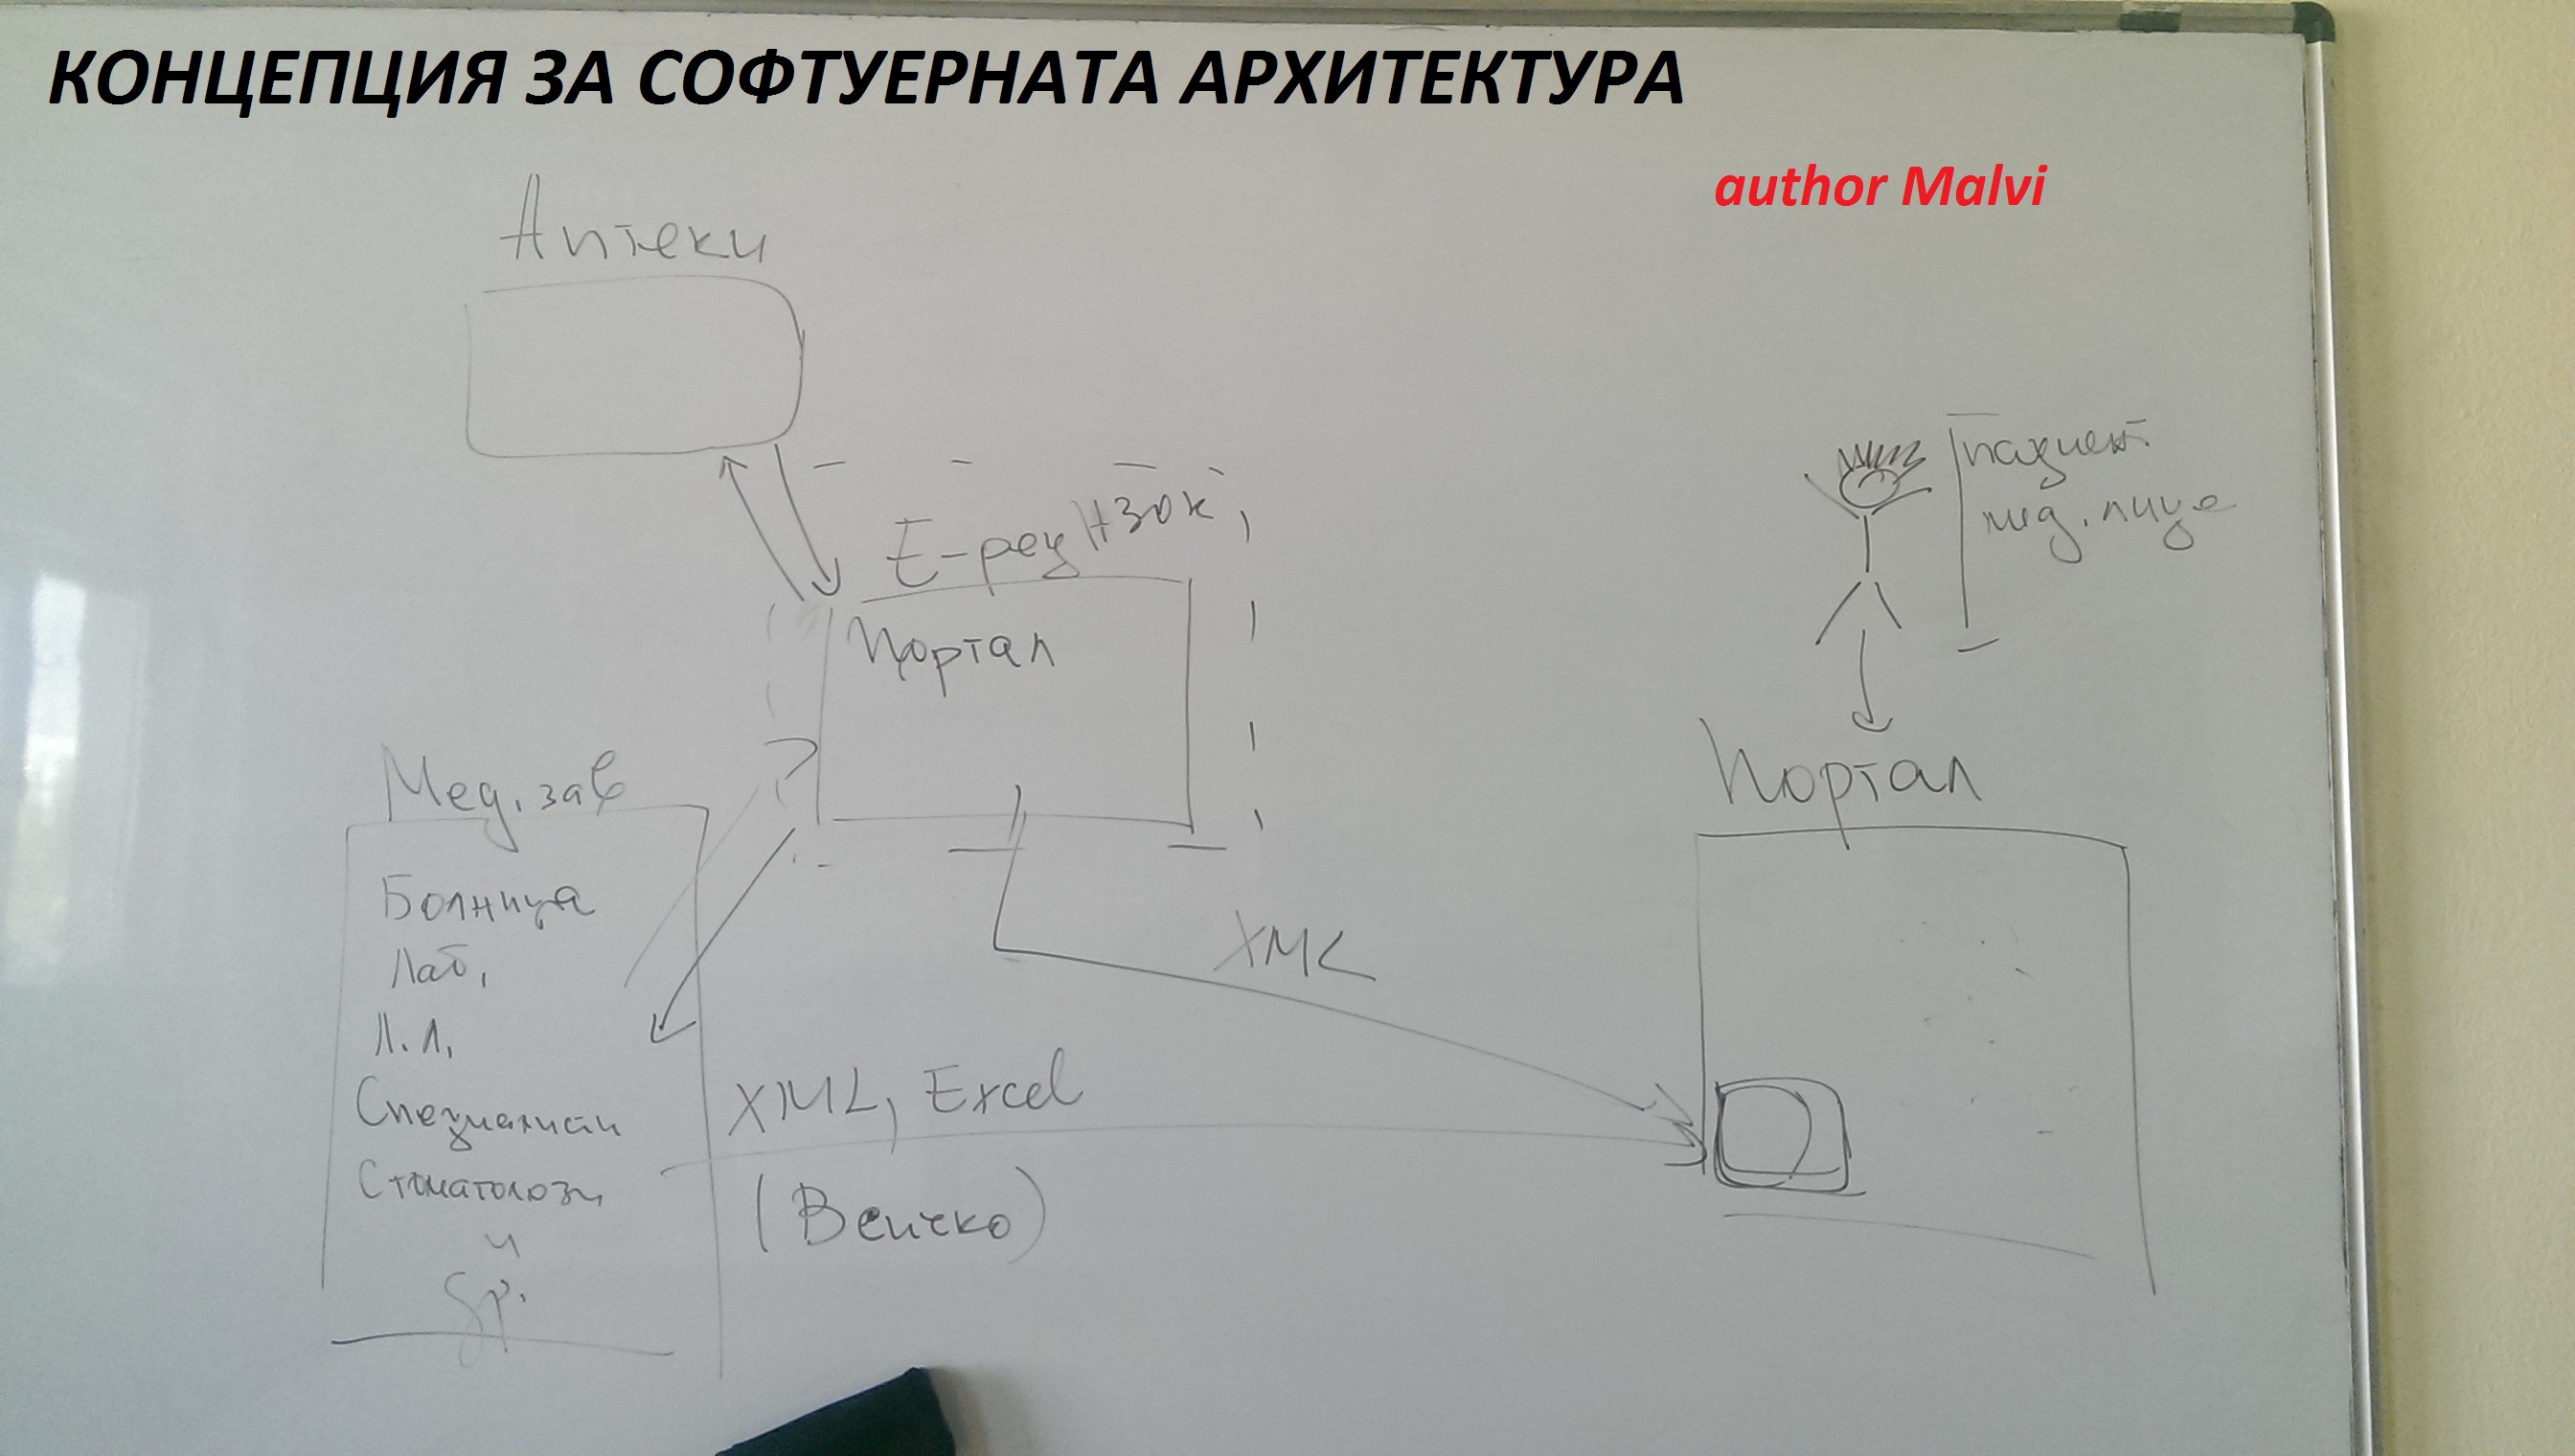 КОНЦЕПЦИЯ ЗА СОФТУЕРНАТА АРХИТЕКТУРА
author Malvi
Аптеки
пациент
мед. лице
Е-рец НЗОК
Портал
Портал
Мед. зав
Болница
Лаб.
Л.Л.
Специалисти
Стоматолози
и
др.
XML
XML, Excel
(Всичко)